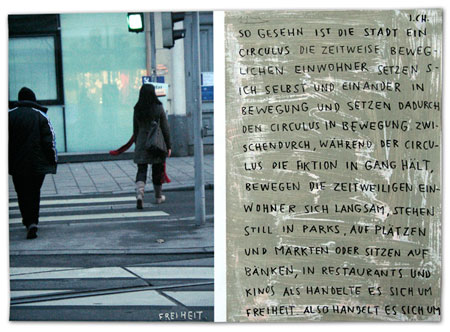 FREIHEIT
I.CH.
SO GESEHN IST DIE STADT EIN
CIRCULUS DIE ZEITWEISE BEWEG-
LICHEN EINWOHNER SETZEN S-
ICH SELBST UND EINANDER IN
BEWEGUNG UND SETZEN DADURCH
DEN CIRCULUS IN BEWEGUNG ZWI-
SCHENDURCH, WÄHREND DER CIRCU-
LUS DIE FIKTION IN GANG HÄLT,
BEWEGEN DIE ZEITWEILIGEN EIN-
WOHNER SICH LANGSAM, STEHEN
STILL IN PARKS, AUF PLÄTZEN
UND MÄRKTEN ODER SITZEN AUF
BÄNKEN, IN RESTAURANTS UND
KINOS ALS HANDELTE ES SICH UM
FREIHEIT ALSO HANDELT ES SICH UM